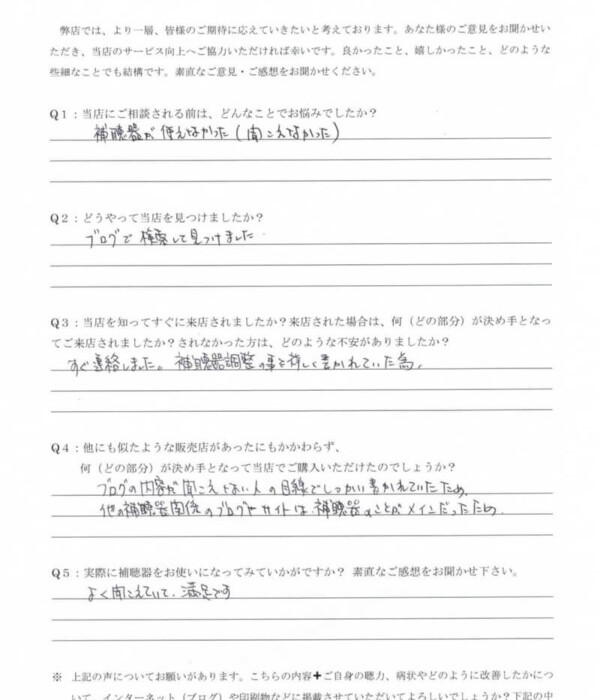 弊店では、より一層、皆様のご期待に応えていきたいと考えております。あなた様のご意見をお聞かせい
ただき、当店のサービス向上へご協力いただければ幸いです。良かったこと、嬉しかったこと、どのような
些細なことでも結構です。素直なご意見・ご感想をお聞かせください。
Q1：当店にご相談される前は、どんなことでお悩みでしたか？
補聴器が使えなかった(聞こえなかった)
Q2：どうやって当店を見つけましたか？
ブログで検索して見つけました
Q3：当店を知ってすぐに来店されましたか？来店された場合は、何（どの部分）が決め手となっ
てご来店されましたか？されなかった方は、どのような不安がありましたか？
すぐ連絡しました。補聴器調整の事を詳しく書かれていた為。
Q4：他にも似たような販売店があったにもかかわらず、
何（どの部分）が決め手となって当店でご購入いただけたのでしょうか？
ブログの内容が聞こえない人の目線でしっかり書かれていたため。
他の補聴器関係のブログやサイトは補聴器のことがメインだったため。
Q5：実際に補聴器をお使いになってみていかがですか？ 素直なご感想をお聞かせ下さい。
よく聞こえていて、満足です
※ 上記の声についてお願いがあります。こちらの内容✚ご自身の聴力、病状やどのように改善したかにつ
いて、インターネット（ブログ）や印刷物などに掲載させていただいてよろしいでしょうか？下記の中